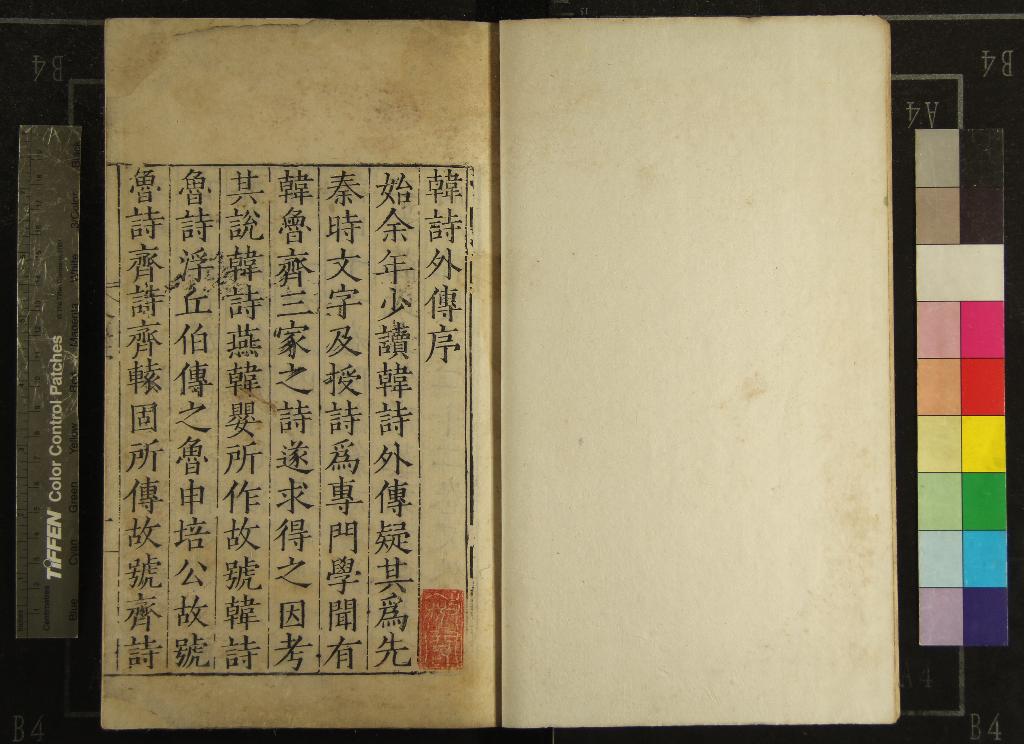 韓詩外傳序
始余年少讀韓詩外傳疑其爲先
秦時文字及授詩爲專門學聞有
韓魯齊三家之詩遂求得之因考
其說韓詩燕韓嬰所作故號韓詩
魯詩浮丘伯傳之魯申培公故號
魯詩齊詩齊轅固所傳故號齊詩
B4
B4
A4
A4
B4
B4
TIFFEN Color Control Patches
Centimetres
Blue
Cyan
Green
Yellow
Red
Magenta
White
3/Color
Black